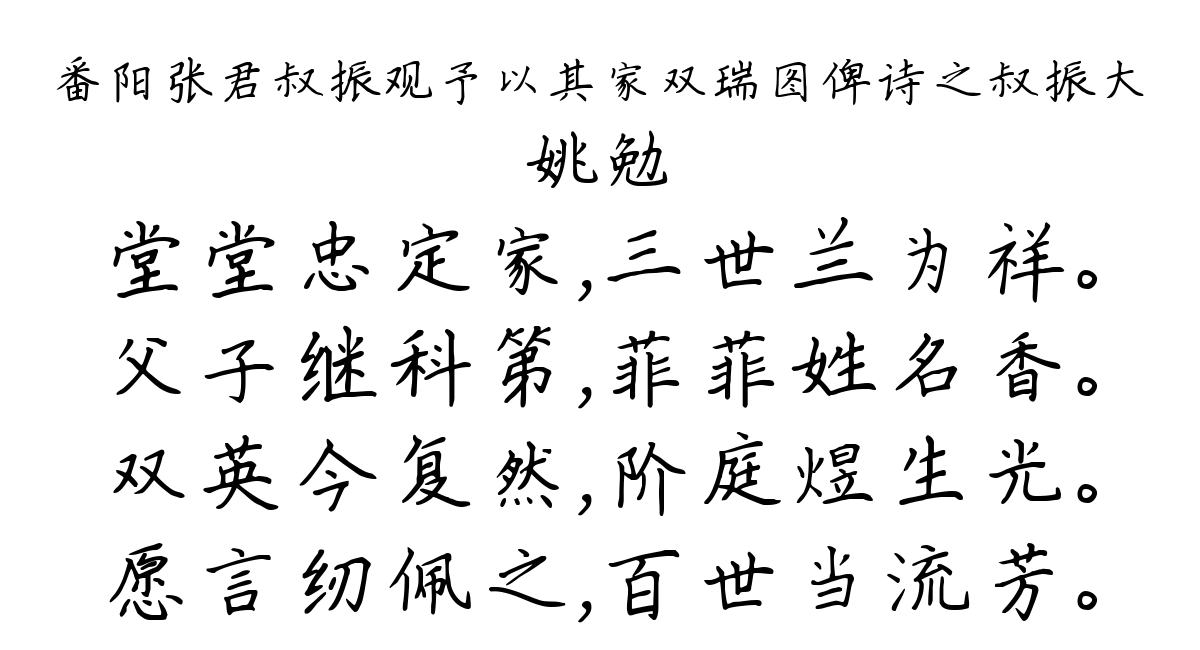 番阳张君叔振观予以其家双瑞图俾诗之叔振大
姚勉
堂堂忠定家,三世兰为祥。
父子继科第,菲菲姓名香。
双英今复然,阶庭煜生光。
愿言纫佩之,百世当流芳。